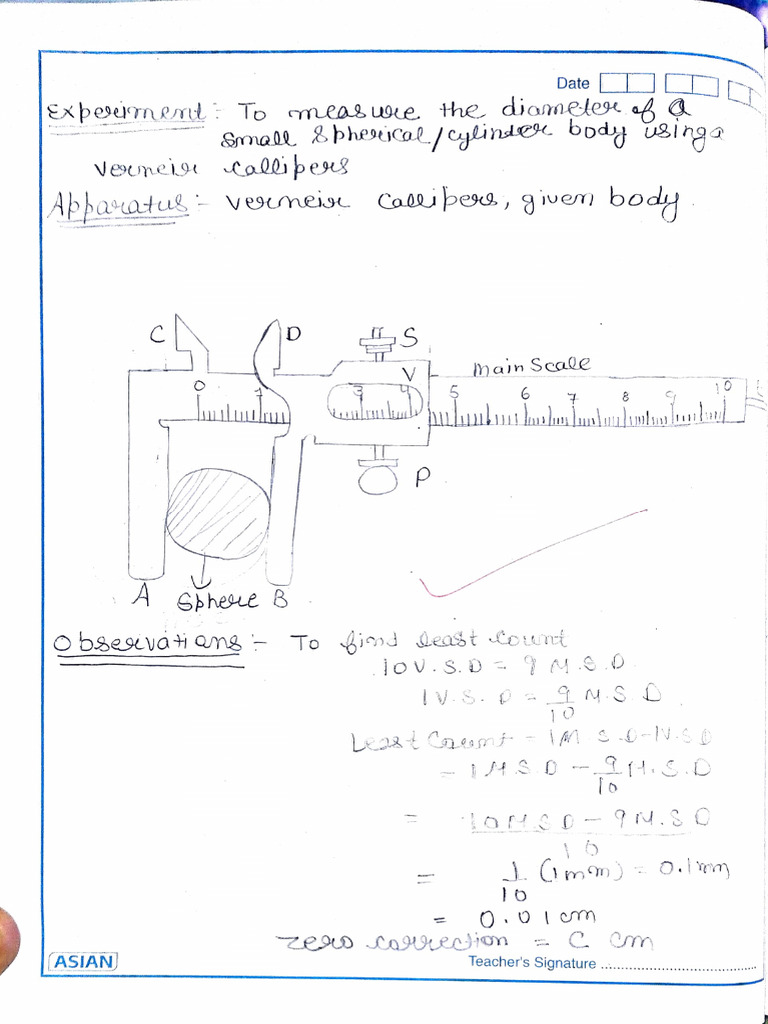 Date
Experiment :- To measure the diameter of a
small spherical/cylinder body using a
Verneir callipers
Apparatus :- Verneir Callipers, given body.
C D S
Main Scale
V
0 1 3 4 5 6 7 8 9 10
P
A Sphere B
Observations :- To find least count
10 V.S.D = 9 M.S.D
1 V.S.D = 9/10 M.S.D
Least Count - 1M S D - 1V.S.D
- 1 M S D - 9/10 M.S.D
= 10 M S D - 9 M.S.D / 10
= 1/10 (1mm) = 0.1mm
= 0.01 cm
zero correction = C cm
ASIAN Teacher's Signature